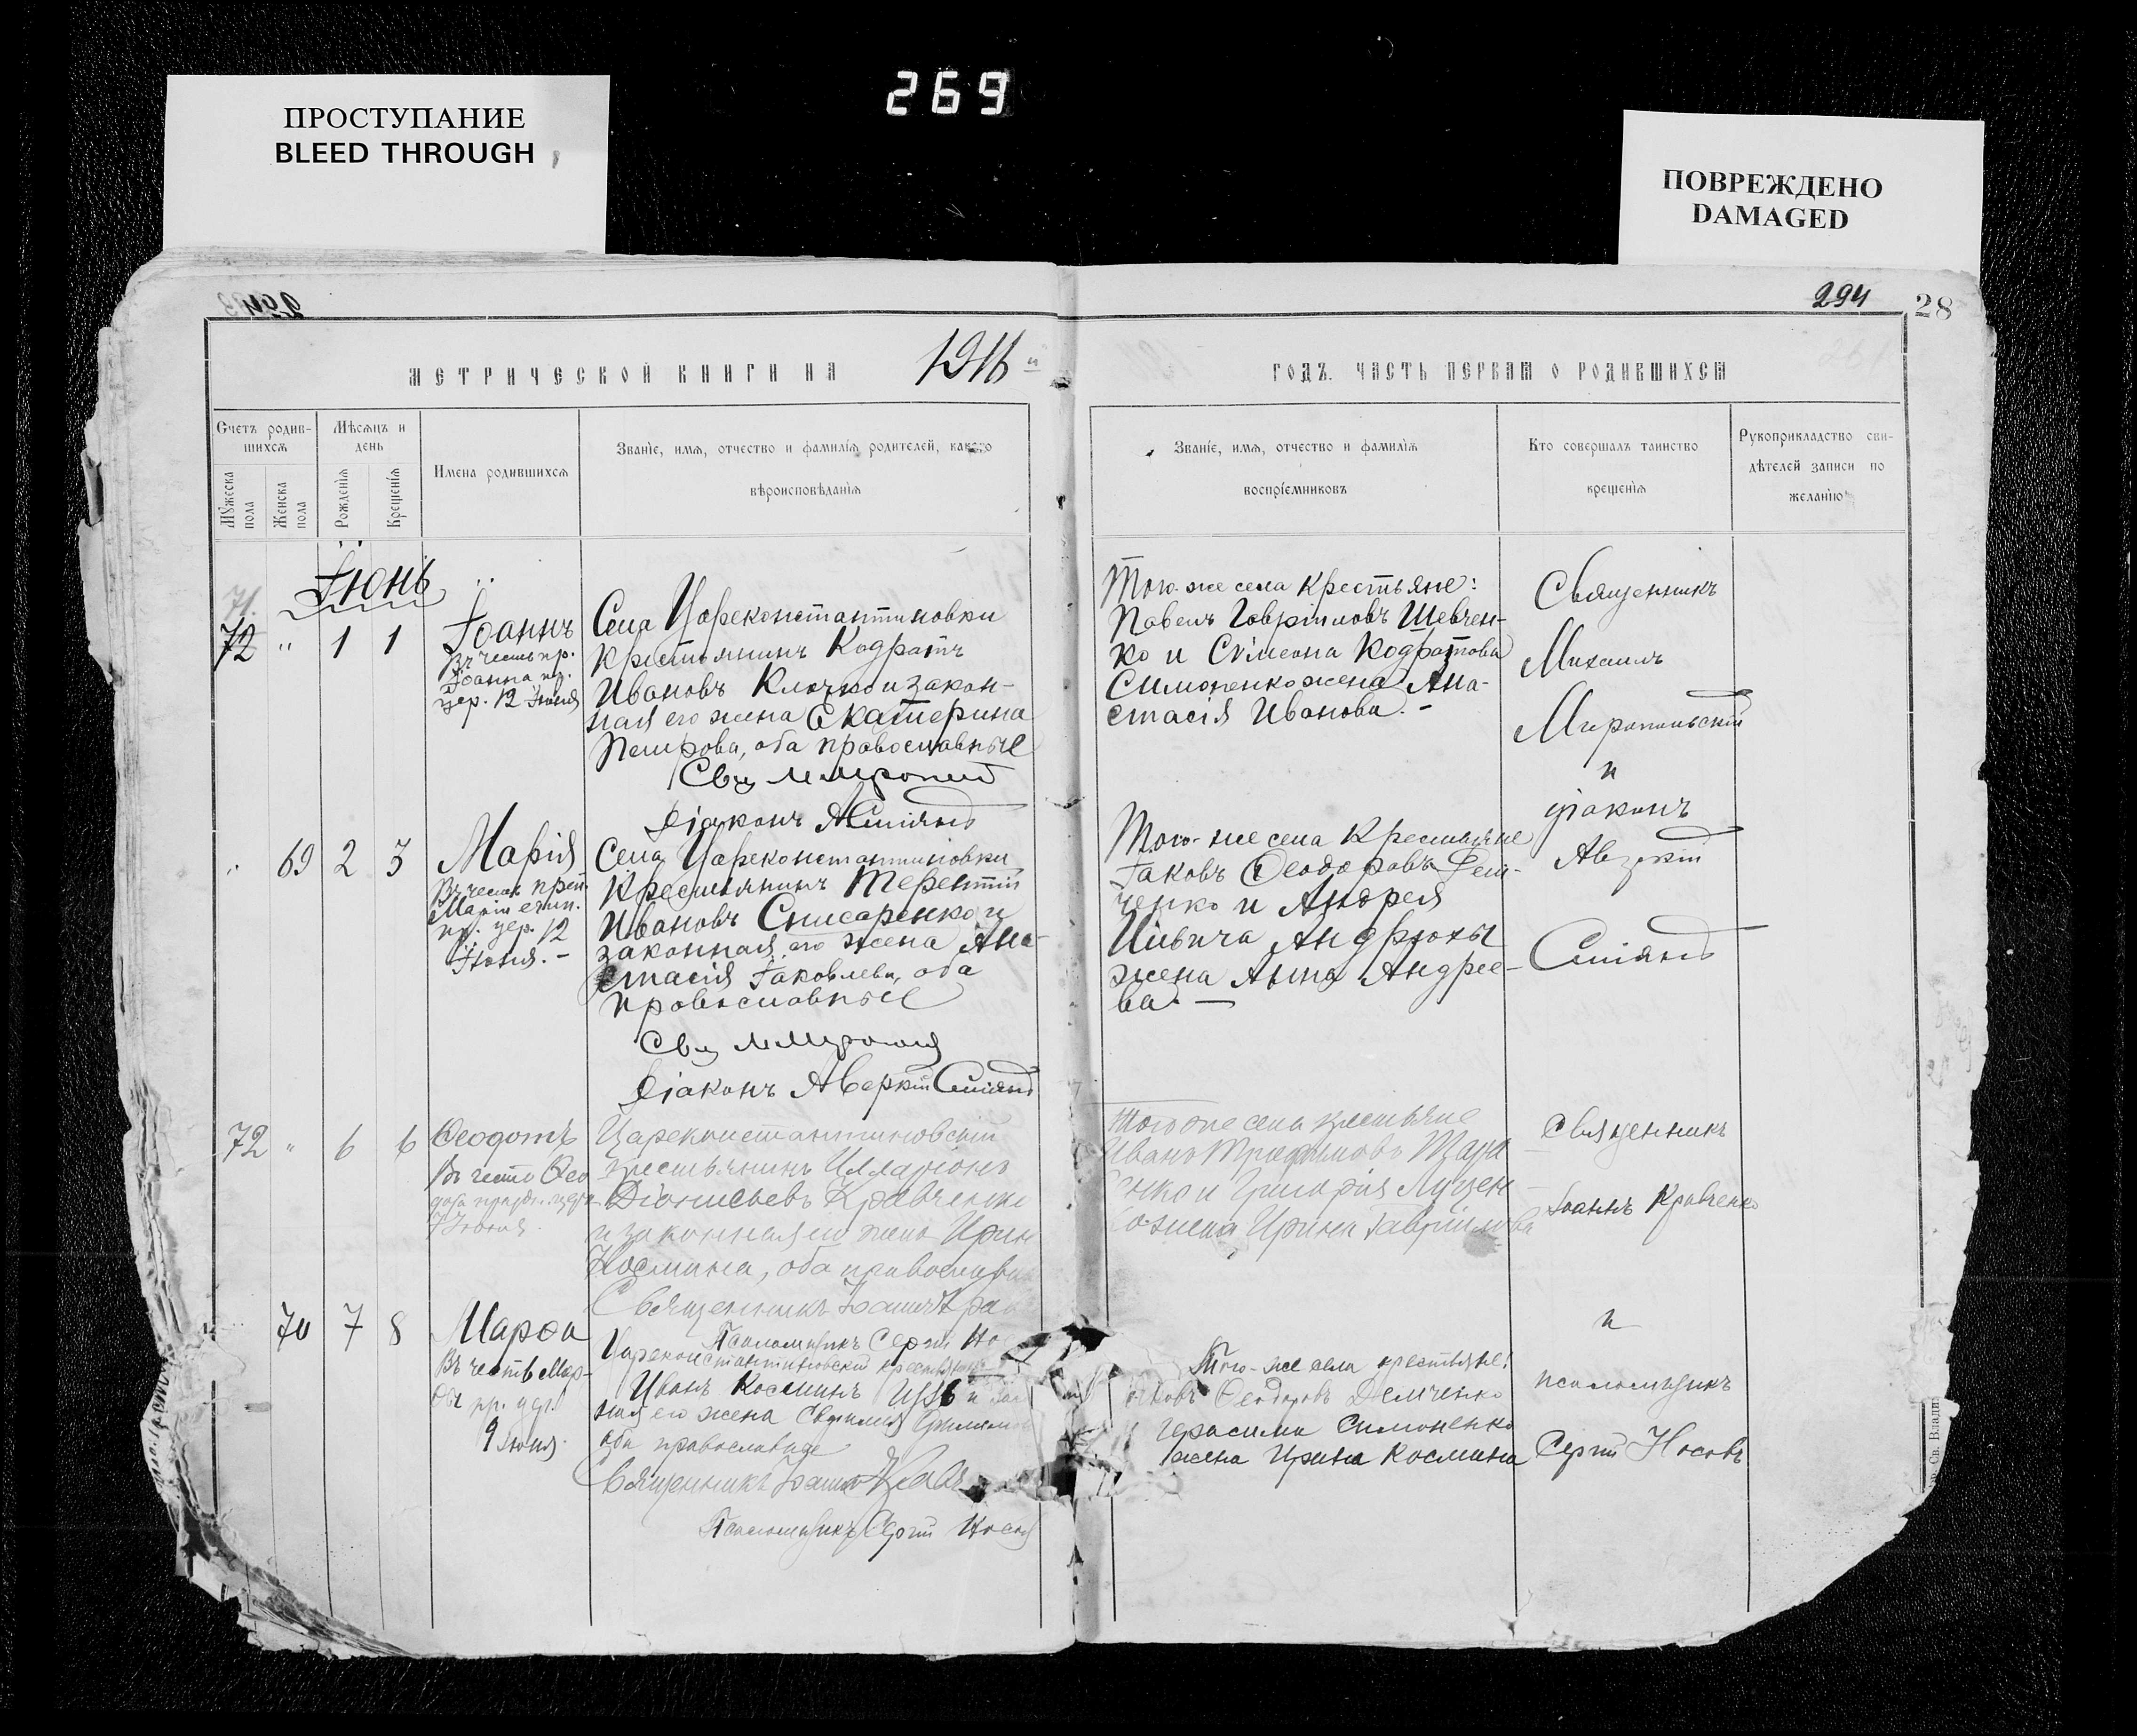 ПРОСТУПАНИЕ
BLEED THROUGH
269
ПОВРЕЖДЕНО
DAMAGED
294
28
МЕТРИЧЕСКОЙ КНИГИ НА
ГОДЪ. ЧАСТЬ ПЕРВАЯ О РОДИВШИХСЯ
Счетъ родив-
шихся
Мужеска
пола
Женска
пола
Мѣсяцъ и
день
Рожденія
Крещенія
Имена родившихся
Званіе, имя, отчество и фамилія родителей, какого
вѣроисповѣданія
Званіе, имя, отчество и фамилія
воспріемниковъ
Кто совершалъ таинство
крещенія
Рукоприкладство сви-
дѣтелей записи по
желанію
Іюнь
71.
72 " 1 1
Іоаннъ
Въ честь пр.
Іоанна пр.
цер. 12 Іюня
Села Цареконстантиновки
крестьянинъ Кодратъ
Ивановъ Клочко и закон-
ная его жена Екатерина
Петрова, оба православные
Діаконъ
Того-же села крестьяне:
Павелъ Гавріиловъ Шевчен-
ко и Сѵмеона Кодратова
Симоненко жена Ана-
стасія Иванова. -
Священникъ
Михаилъ
Миропольскій
и
діаконъ
" 69 2 3
Марія
Въ честь преп.
Маріи егип.
пр. цер. 12
Іюня. -
Села Цареконстантиновки
Крестьянинъ Терентій
Ивановъ Слисаренко и
законная его жена Ана-
стасія Іаковлева, оба
православные
Діаконъ Аверкій
Того-же села Крестьяне
Іаковъ Ѳеодоровъ Дем-
ченко и Андрея
Андрюхи
жена Анна Андрее-
ва. —
72 " 6 6
Ѳеодотъ
Въ честь Ѳео
7 Іюня
Цареконстантиновскій
крестьянинъ Илларіонъ
Діонисьевъ Кравченко
и законная его жена Ирин
Космина, оба православн
Священникъ Іоаннъ Крав
Псаломщикъ Сергій Но
Того же села крестьяне
Иванъ Тара
енко и Григорія Луцен
ко жена Ирина Гавріилова
Священникъ
Іоаннъ Кравченко
70 7 8
Марѳа
Въ честь Мар-
ѳы пр. цер.
9 Іюня.
Цареконстантиновскій крестьянинъ
Иванъ Косминъ
ная его жена Евфимія
оба православные
Священникъ Іоаннъ Кравч
Псаломщикъ Сергій Носов
Того-же села крестьяне:
Ѳеодоровъ Демченко
Герасима Симоненко
жена Ирина Космина
и
псаломщикъ
Сергій Носовъ